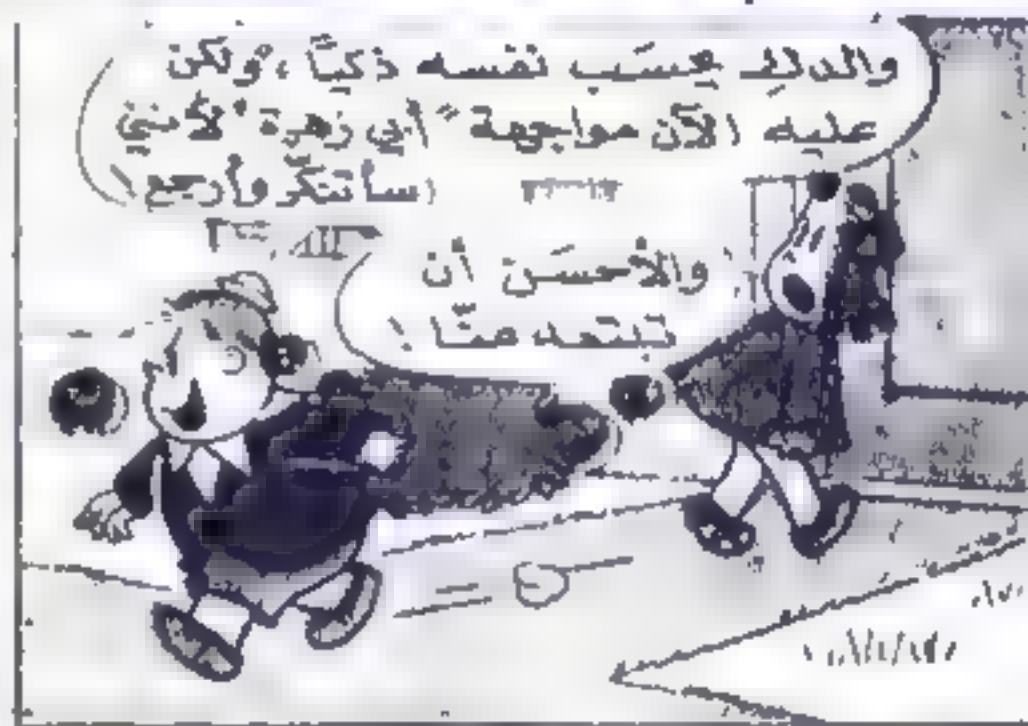 والدك يحسَب نفسه ذكيًّا، ولكن
عليه الآن مواجهة "أبي زهرة" لأنني
سأتنكّر وأرجع!
والأحسَن أن
تبتعد عنّا!